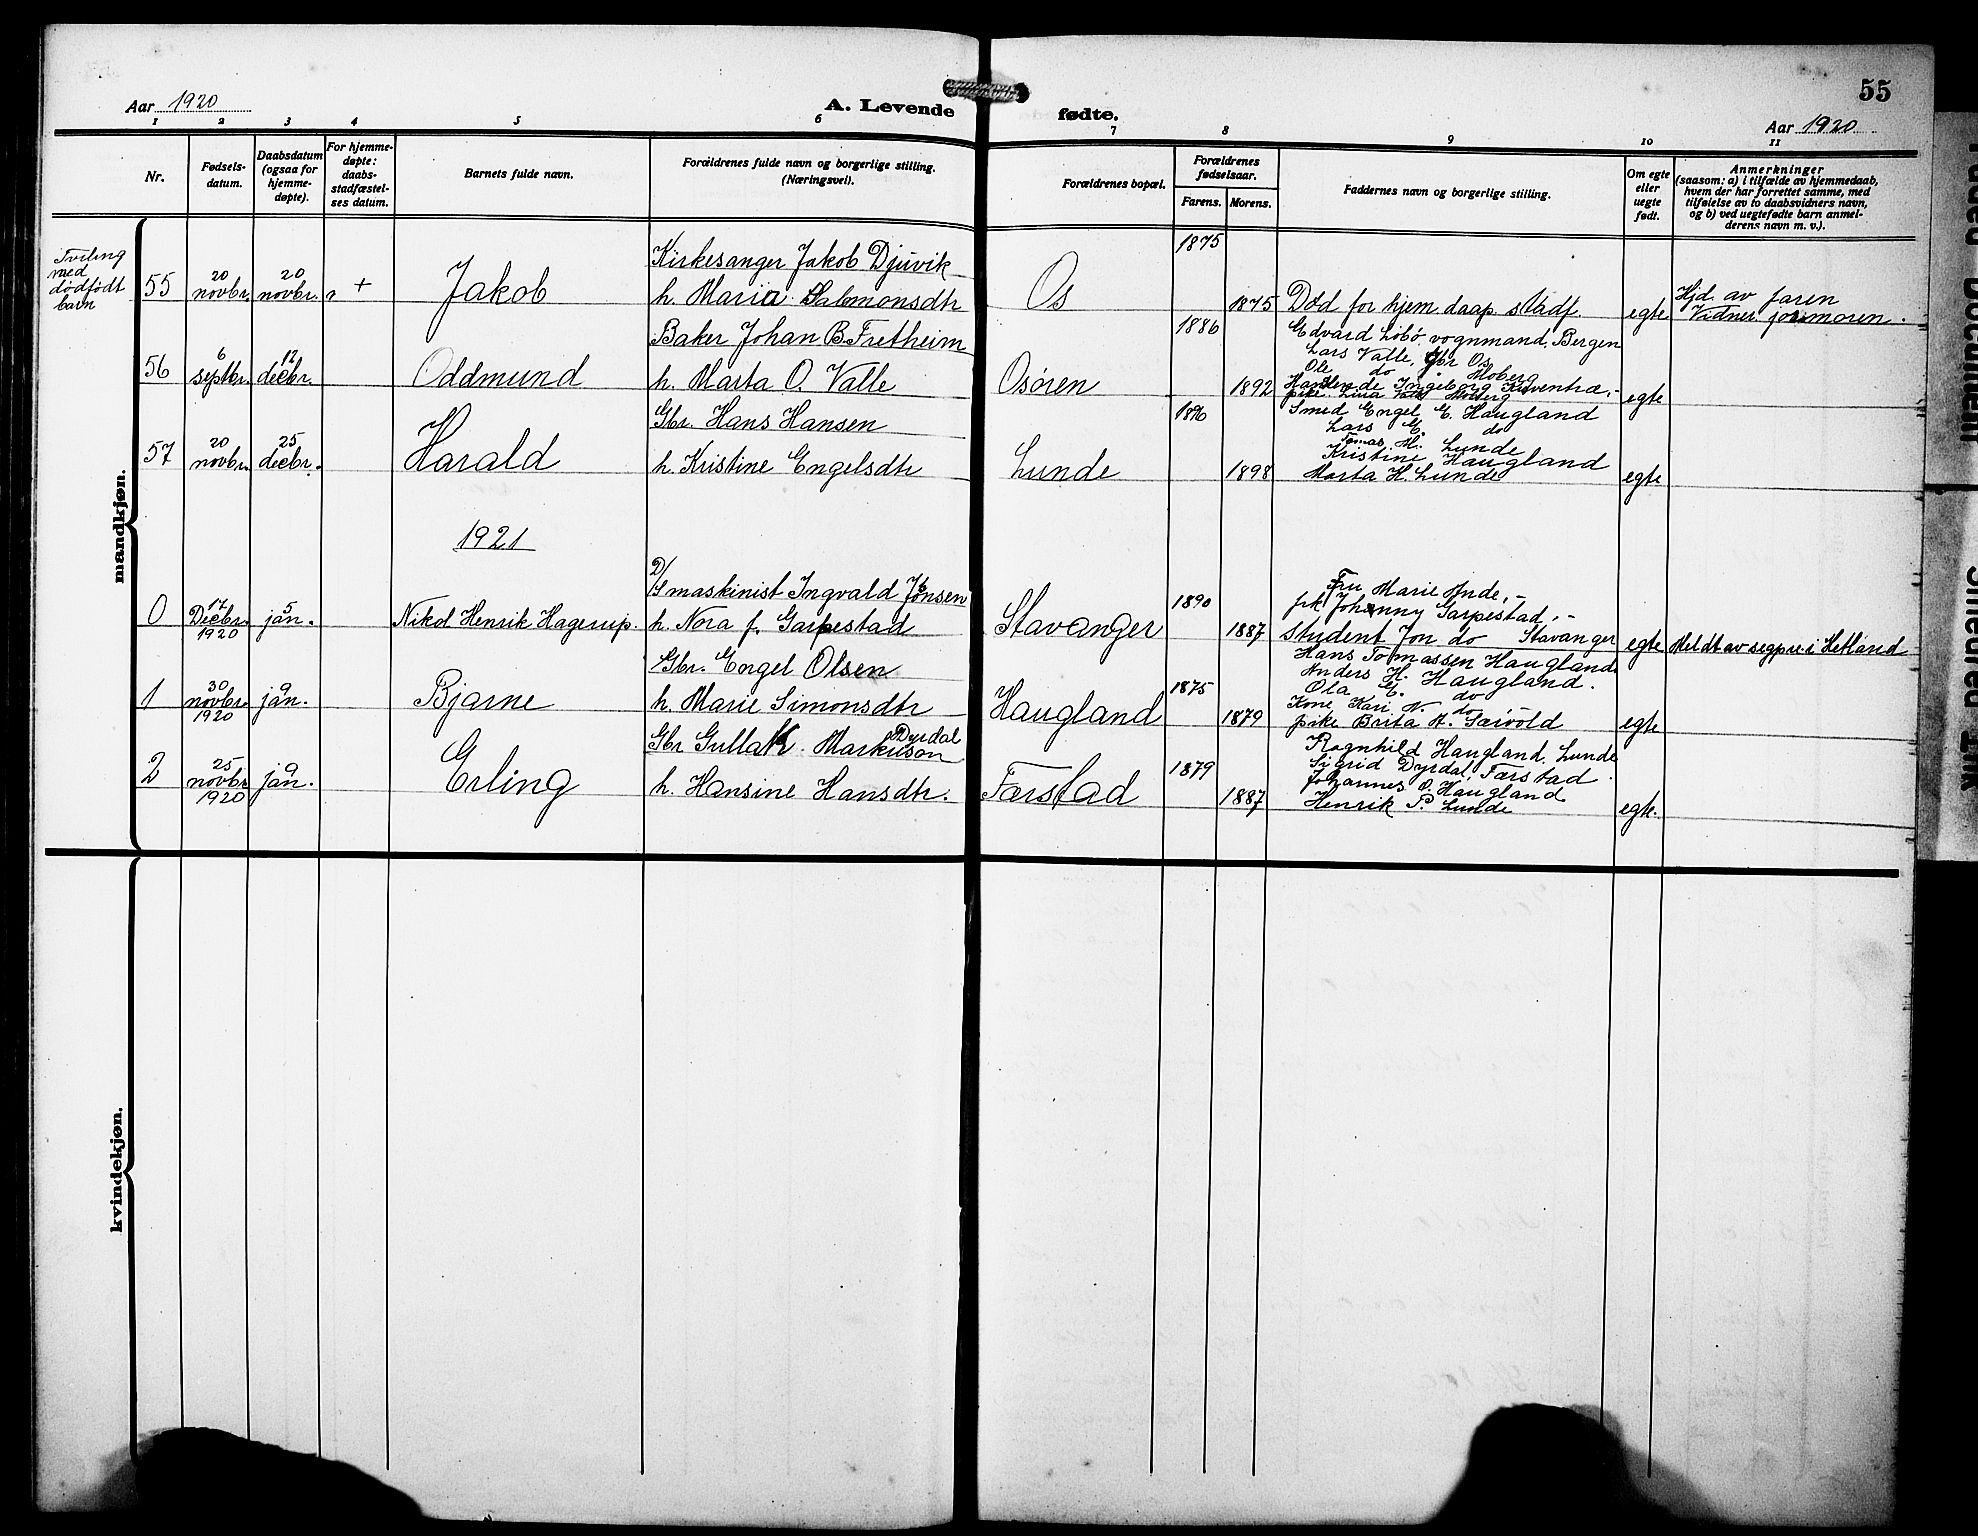 55
Aar 1920
A. Levende
fødte.
Aar 1920
1 2 3 4 5 6 7 8 9 10 11
Nr.
Fødsels-
datum.
Daabsdatum
(ogsaa for
hjemme-
døpte).
For hjemme-
døpte:
daabs-
stadfæstel-
ses datum.
Barnets fulde navn.
Forældrenes fulde navn og borgerlige stilling.
(Næringsvei).
Forældrenes bopæl.
Forældrenes
fødselsaar.
Farens. Morens.
Faddernes navn og borgerlige stilling.
Om egte
eller
uegte
født.
Anmerkninger
(saasom: a) i tilfælde av hjemmedaab,
hvem der har forrettet samme, med
tilføielse av to daabsvidners navn,
og b) ved uegtefødte barn anmel-
derens navn m. v.).
mandkjøn.
Tviling
med
dødfødt
barn
55
20
novbr.
20
novbr.
+
Jakob
Kirkesanger Jakob Djuvik
h. Maria Salomonsdtr
Os
1875
1875
Død for hjem.daap. stadf.
egte
Hjd. av faren
Vidner jormoren.
56
6
septbr.
12
decbr.
Oddmund
Baker Johan B. Fretheim
h. Marta O. Valle
Osøren
1886
1892
Edvard Libø, vognmand, Bergen
Lars Valle, Gbr Os
Ole do Moberg
egte
57
20
novbr.
25
decbr.
Harald
Gbr. Hans Hansen
h. Kristine Engelsdtr
Lunde
1896
1898
Smed Engel E. Haugland
Lars E. do
Tomas H. Lunde
Kristine Haugland
Marta H. Lunde
egte
1921
0
17
Decbr.
1920
5
jan.
Nikol Henrik Hagerup.
2/
Smaskinist Ingvald Jonsen
h. Nora f. Garpestad
Stavanger
1890
1887
Fru Marie Ande, -
frk Johanny Garpestad, -
student Jon do Stavanger
egte
Meldt av segpr. i Hetland
1
30
novbr.
1920
9
jan.
Bjarne
Gbr. Engel Olsen
h. Marie Simonsdtr
Haugland
1875
1879
Hans Tomassen Haugland
Anders H. Haugland.
Ola E. do
Kone Kari N. do
pike Brita A. Søvold
egte
2
25
novbr
1920
9
jan.
Erling
Dyrdal
Gbr Gullak Markuson
h. Hansine Hansdtr.
Førstad
1879
1887
Ragnhild Haugland, Lunde
Sigrid Dyrdal, Førstad
Johannes O. Haugland
Henrik P. Lunde
egte.
kvindekjøn.